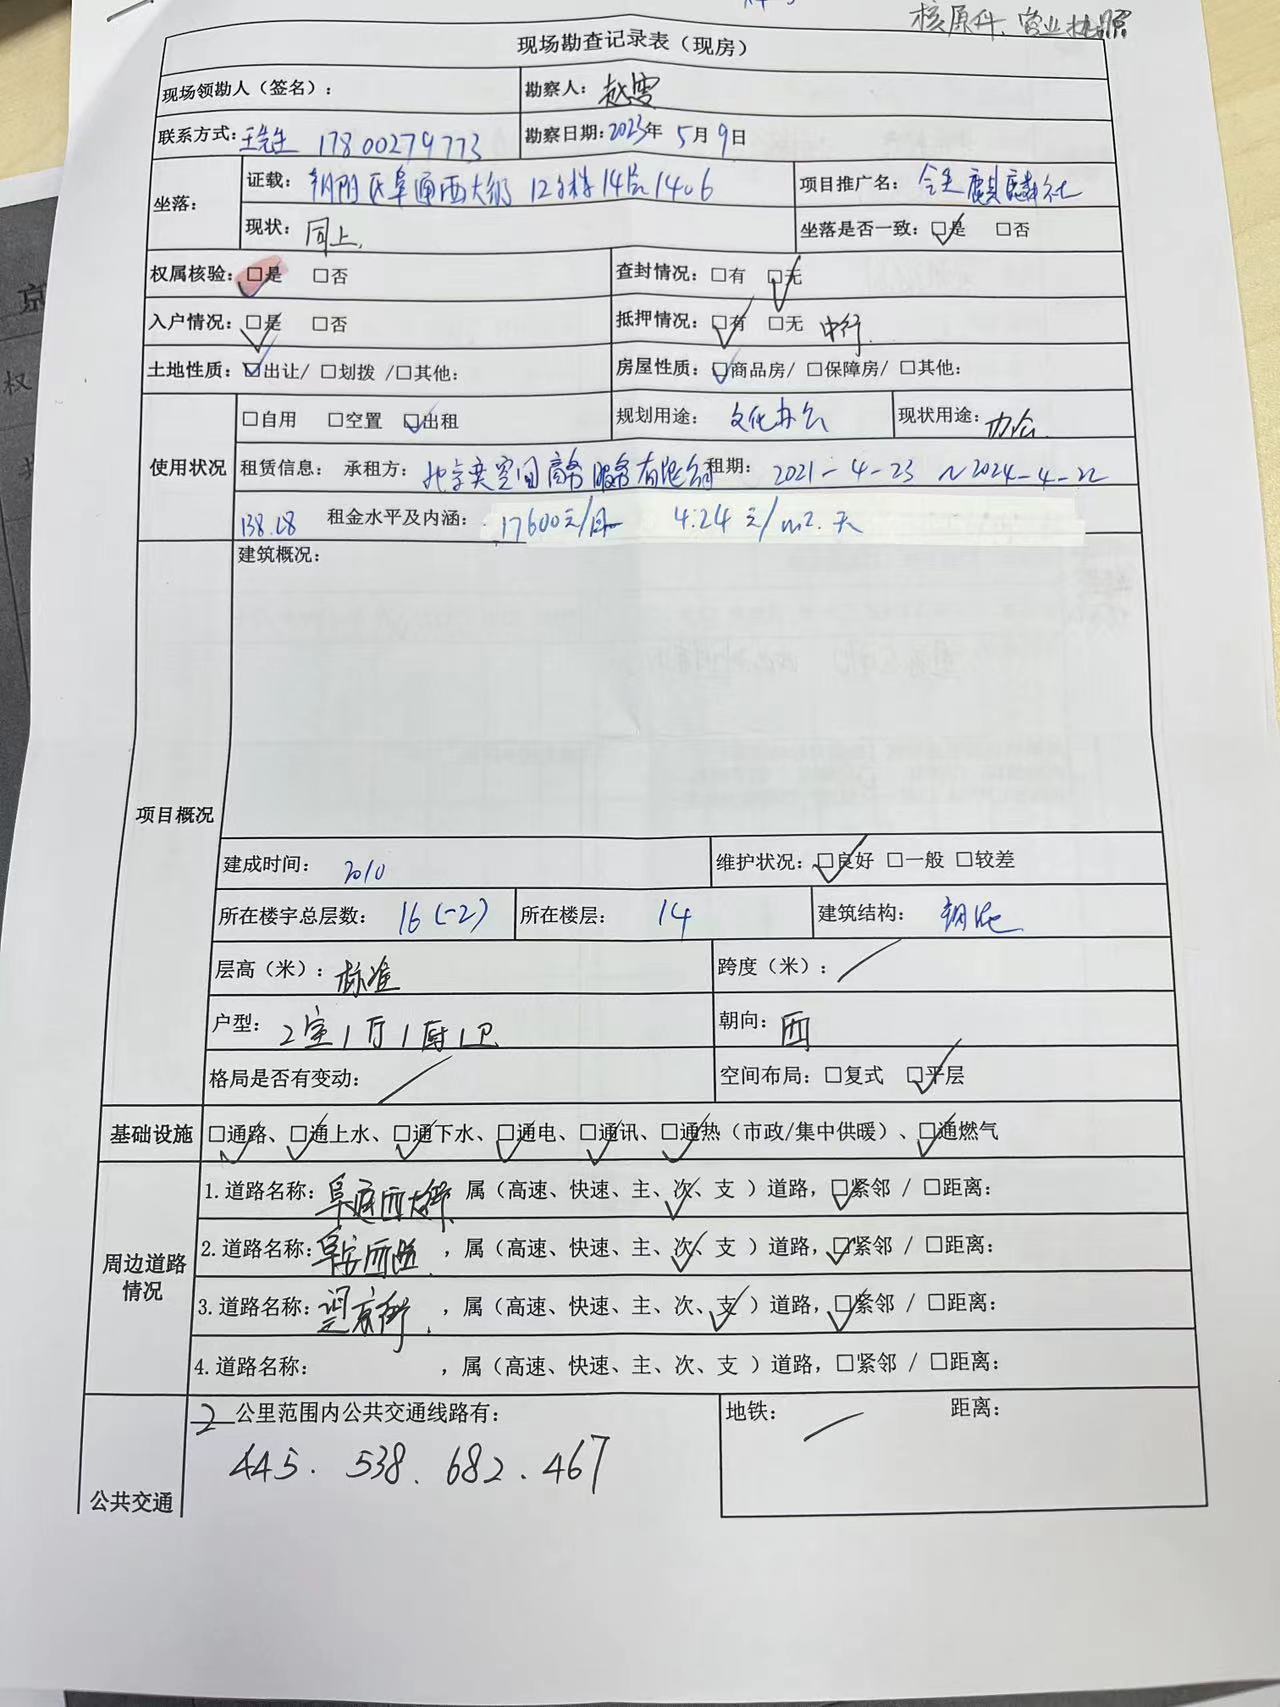 核原件、营业执照
现场勘查记录表（现房）
现场领勘人（签名）： 勘察人：赵雪
联系方式：王先生 17800279773 勘察日期：2023年 5月9日
坐落： 证载：朝阳区阜通西大街 12号楼14层1406 项目推广名：合生麒麟社
现状：同上. 坐落是否一致：☑是 □否
权属核验：☑是 □否 查封情况：□有 ☑无
入户情况：☑是 □否 抵押情况：☑有 □无 中行.
土地性质：☑出让/ □划拨 /□其他： 房屋性质：☑商品房/ □保障房/ □其他：
使用状况 □自用 □空置 ☑出租 规划用途：文化办公 现状用途：办公
租赁信息： 承租方：北京 空间商务服务有限公司 租期：2021-4-23 ~2024-4-22
138.28 租金水平及内涵：17600元/月 4.24元/m2.天
项目概况 建筑概况：
建成时间：2010 维护状况：☑良好 □一般 □较差
所在楼宇总层数：16(-2) 所在楼层：14 建筑结构：钢混
层高（米）：标准 跨度（米）：／
户型：2室1厅1厨1卫 朝向：西
格局是否有变动：／ 空间布局：□复式 ☑平层
基础设施 ☑通路、☑通上水、☑通下水、☑通电、☑通讯、☑通热（市政/集中供暖）、☑通燃气
周边道路情况 1.道路名称：阜通西大街，属（高速、快速、主、次✓、支 ）道路，☑紧邻 / □距离：
2.道路名称：阜安西路，属（高速、快速、主、次✓、支 ）道路，☑紧邻 / □距离：
3.道路名称：望京街，属（高速、快速、主、次、支✓ ）道路，☑紧邻 / □距离：
4.道路名称： ，属（高速、快速、主、次、支 ）道路，□紧邻 / □距离：
公共交通 2 公里范围内公共交通线路有： 地铁：／ 距离：
445. 538. 682. 467